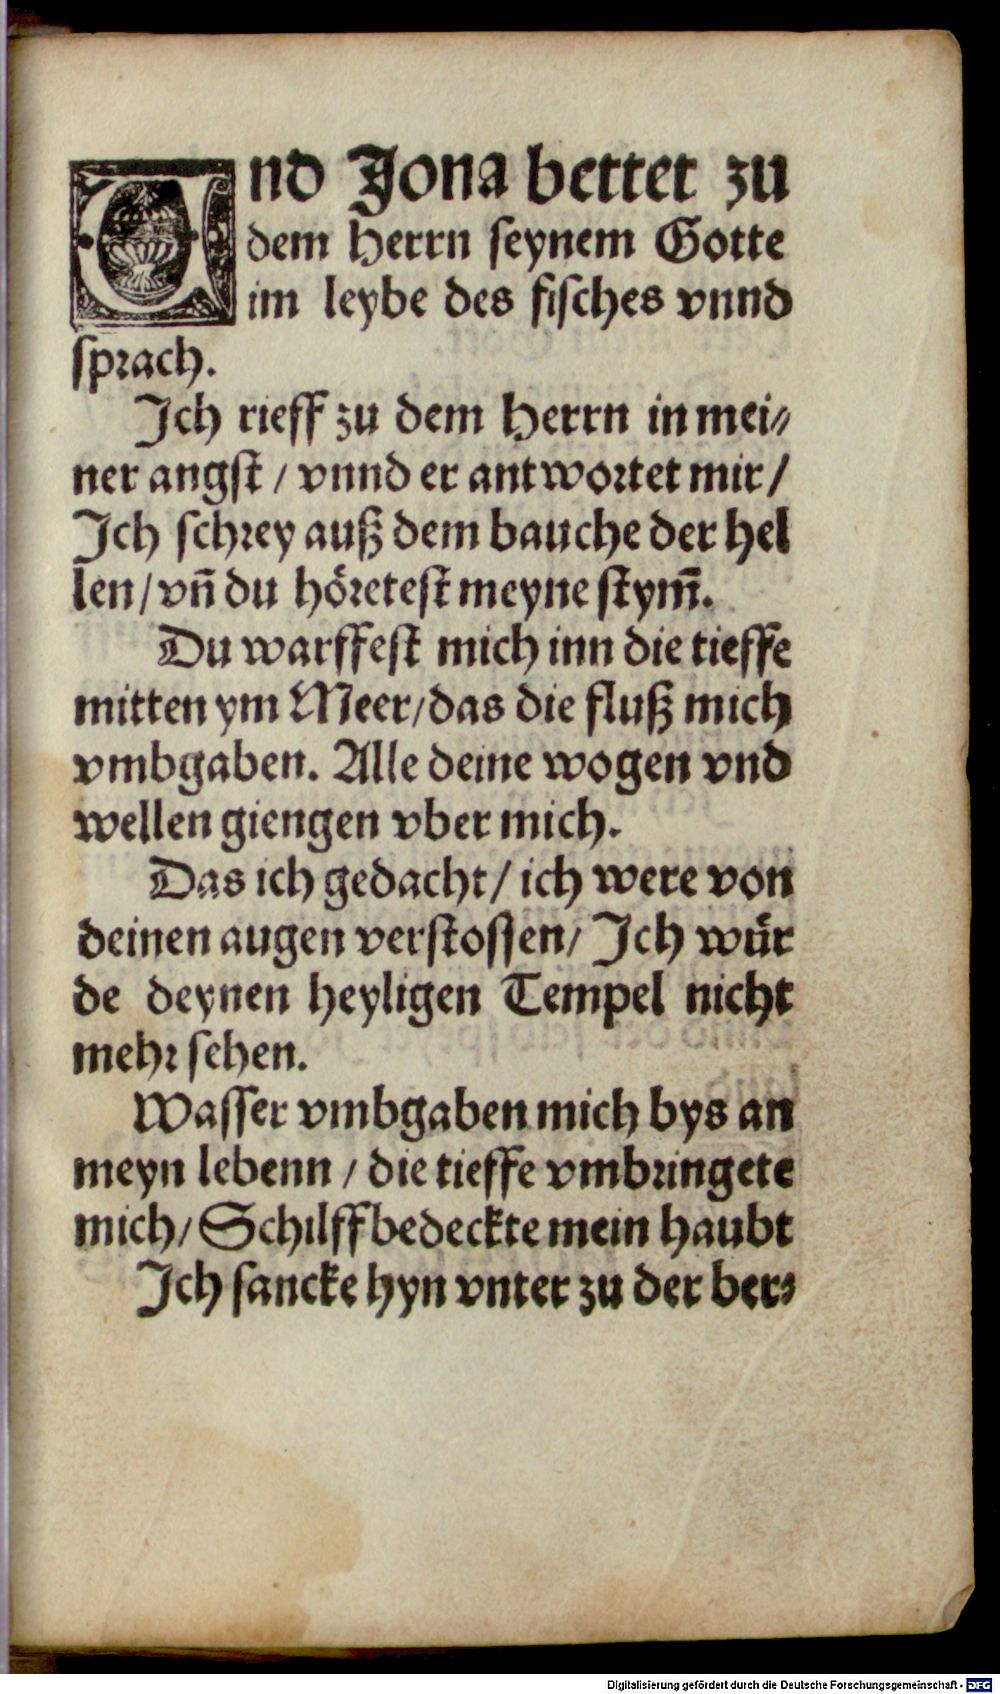 Und Jona bettet zu
dem Herrn seynem Gotte
im leybe des fisches vnnd
sprach.
Jch rieff zu dem Herrn in mei⸗
ner angst / vnnd er antwortet mir /
Jch schrey auß dem bauche der hel
len / vn̄ du höretest meyne stym̄.
Du warffest mich inn die tieffe
mitten ym Meer / das die fluß mich
vmbgaben. Alle deine wogen vnd
wellen giengen vber mich.
Das ich gedacht / ich were von
deinen augen verstossen / Jch wür
de deynen heyligen Tempel nicht
mehr sehen.
Wasser vmbgaben mich bys an
meyn lebenn / die tieffe vmbringete
mich / Schilff bedeckte mein haubt
Jch sancke hyn vnter zu der ber⸗
Digitalisierung gefördert durch die Deutsche Forschungsgemeinschaft - DFG